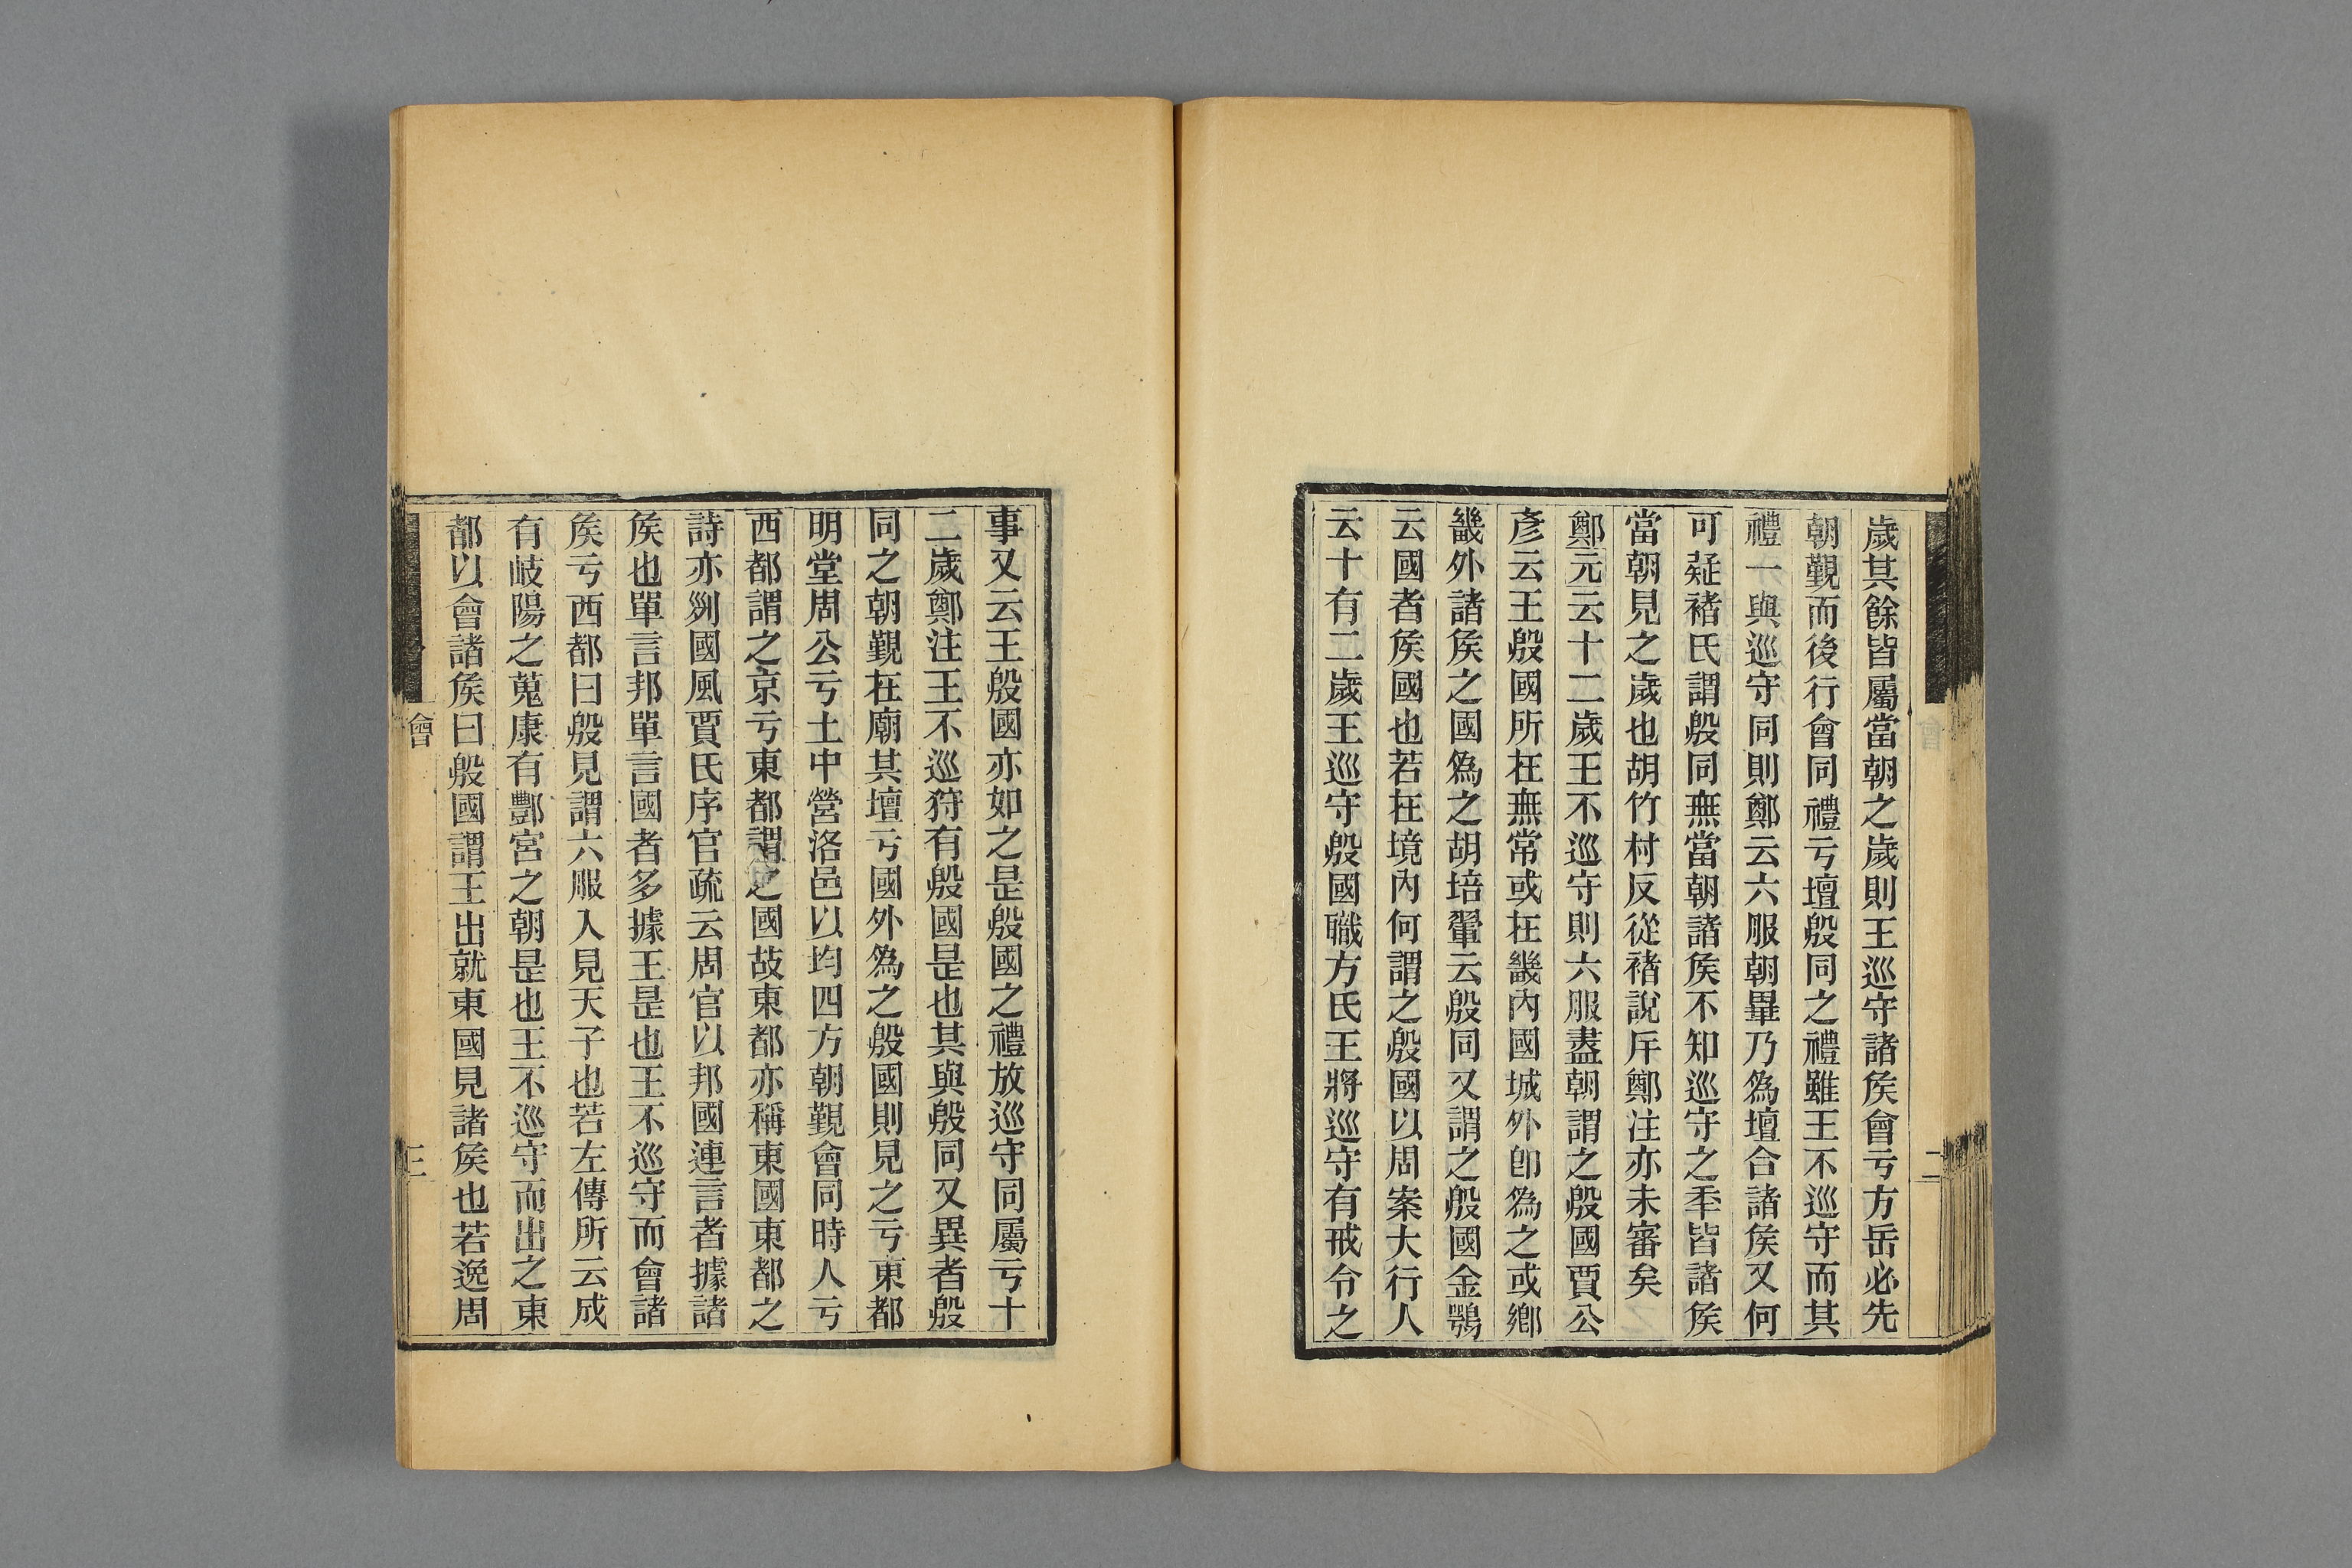 歲其餘皆屬當朝之歲則王巡守諸矦會亏方岳必先
朝覲而後行會同禮亏壇殷同之禮雖王不巡守而其
禮一與巡守同則鄭云六服朝畢乃爲壇合諸矦又何
可疑褚氏謂殷同無當朝諸矦不知巡守之秊皆諸矦
當朝見之歲也胡竹村反從褚說斥鄭注亦未審矣
鄭元云十二歲王不巡守則六服盡朝謂之殷國賈公
彥云王殷國所在無常或在畿內國城外卽爲之或鄉
畿外諸矦之國爲之胡培翬云殷同又謂之殷國金鶚
云國者矦國也若在境內何謂之殷國以周案大行人
云十有二歲王巡守殷國職方氏王將巡守有戒令之
二
事又云王殷國亦如之是殷國之禮放巡守同屬亏十
二歲鄭注王不巡狩有殷國是也其與殷同又異者殷
同之朝覲在廟其壇亏國外爲之殷國則見之亏東都
明堂周公亏土中營洛邑以均四方朝覲會同時人亏
西都謂之京亏東都謂之國故東都亦稱東國東都之
詩亦列國風賈氏序官疏云周官以邦國連言者據諸
矦也單言邦單言國者多據王是也王不巡守而會諸
矦亏西都曰殷見謂六服入見天子也若左傳所云成
有岐陽之蒐康有酆宮之朝是也王不巡守而出之東
都以會諸矦曰殷國謂王出就東國見諸矦也若逸周
會
三